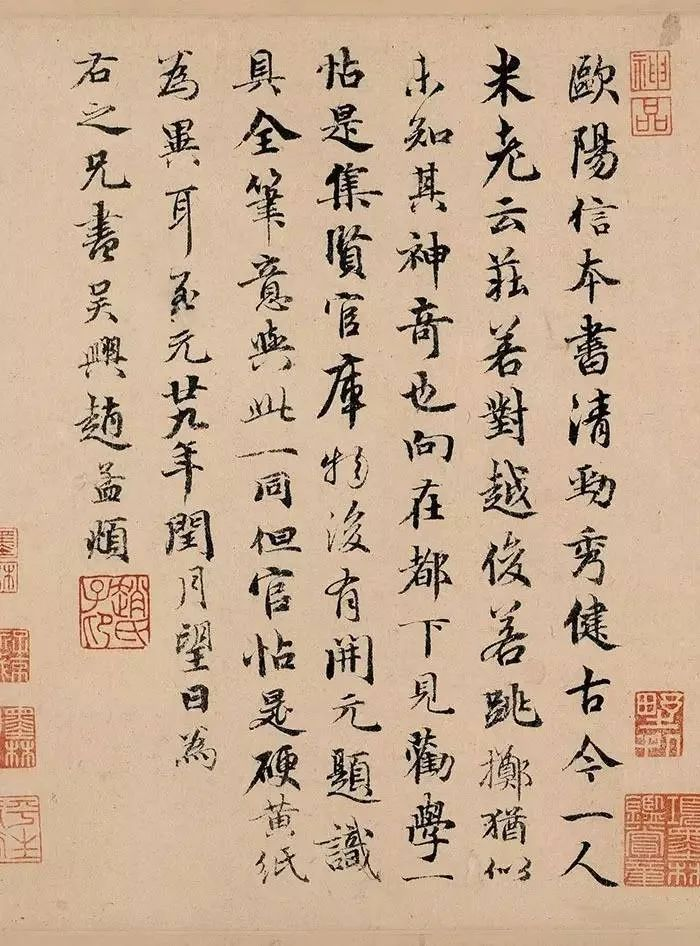 神品
歐陽信本書清勁秀健古今一人
米老云莊若對越俊若跳擲猶似
未知其神奇也向在都下見勸學一
帖是集賢官庫物後有開元題識
具全筆意與此一同但官帖是硬黃紙
為異耳至元廿九年閏月望日為
右之兄書吳興趙孟頫
趙氏子昂
項墨林鑑賞章
墨林